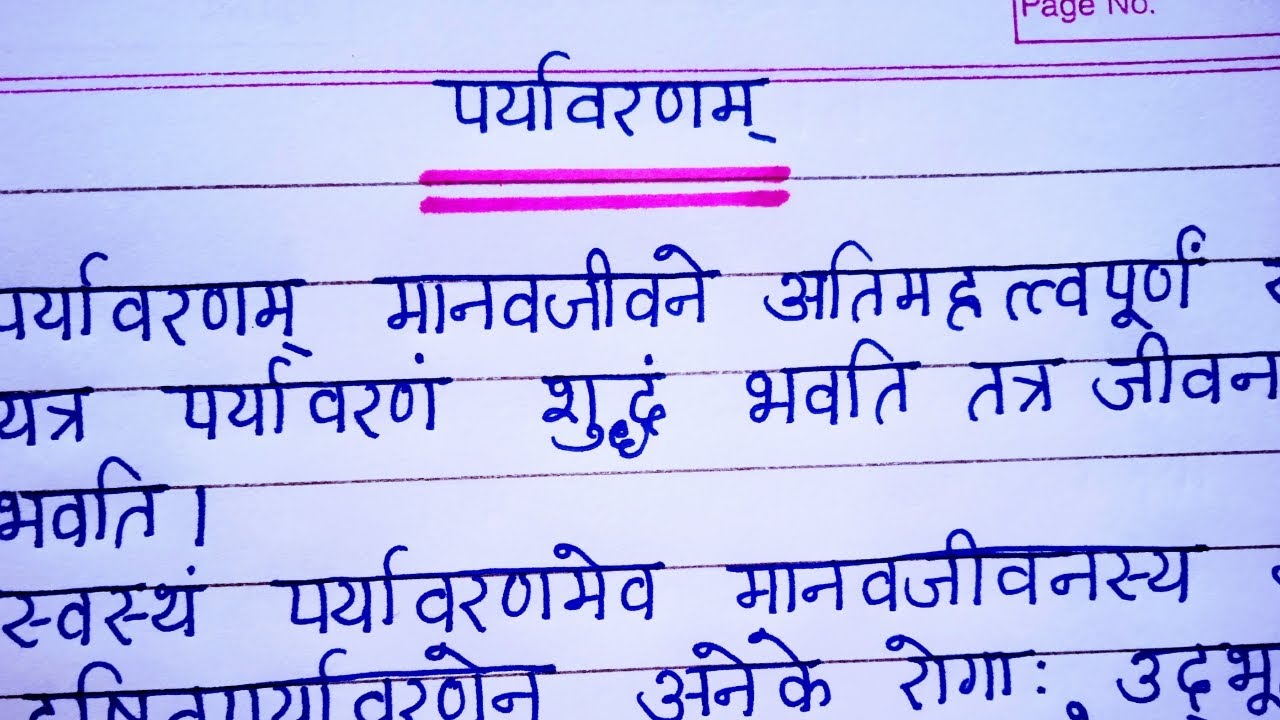 Page No.
पर्यावरणम्
पर्यावरणम् मानवजीवने अतिमहत्त्वपूर्णं
यत्र पर्यावरणं शुद्धं भवति तत्र जीवन
भवति।
स्वस्थं पर्यावरणमेव मानवजीवनस्य
दूषितपर्यावरणेन अनेके रोगाः उद्भू